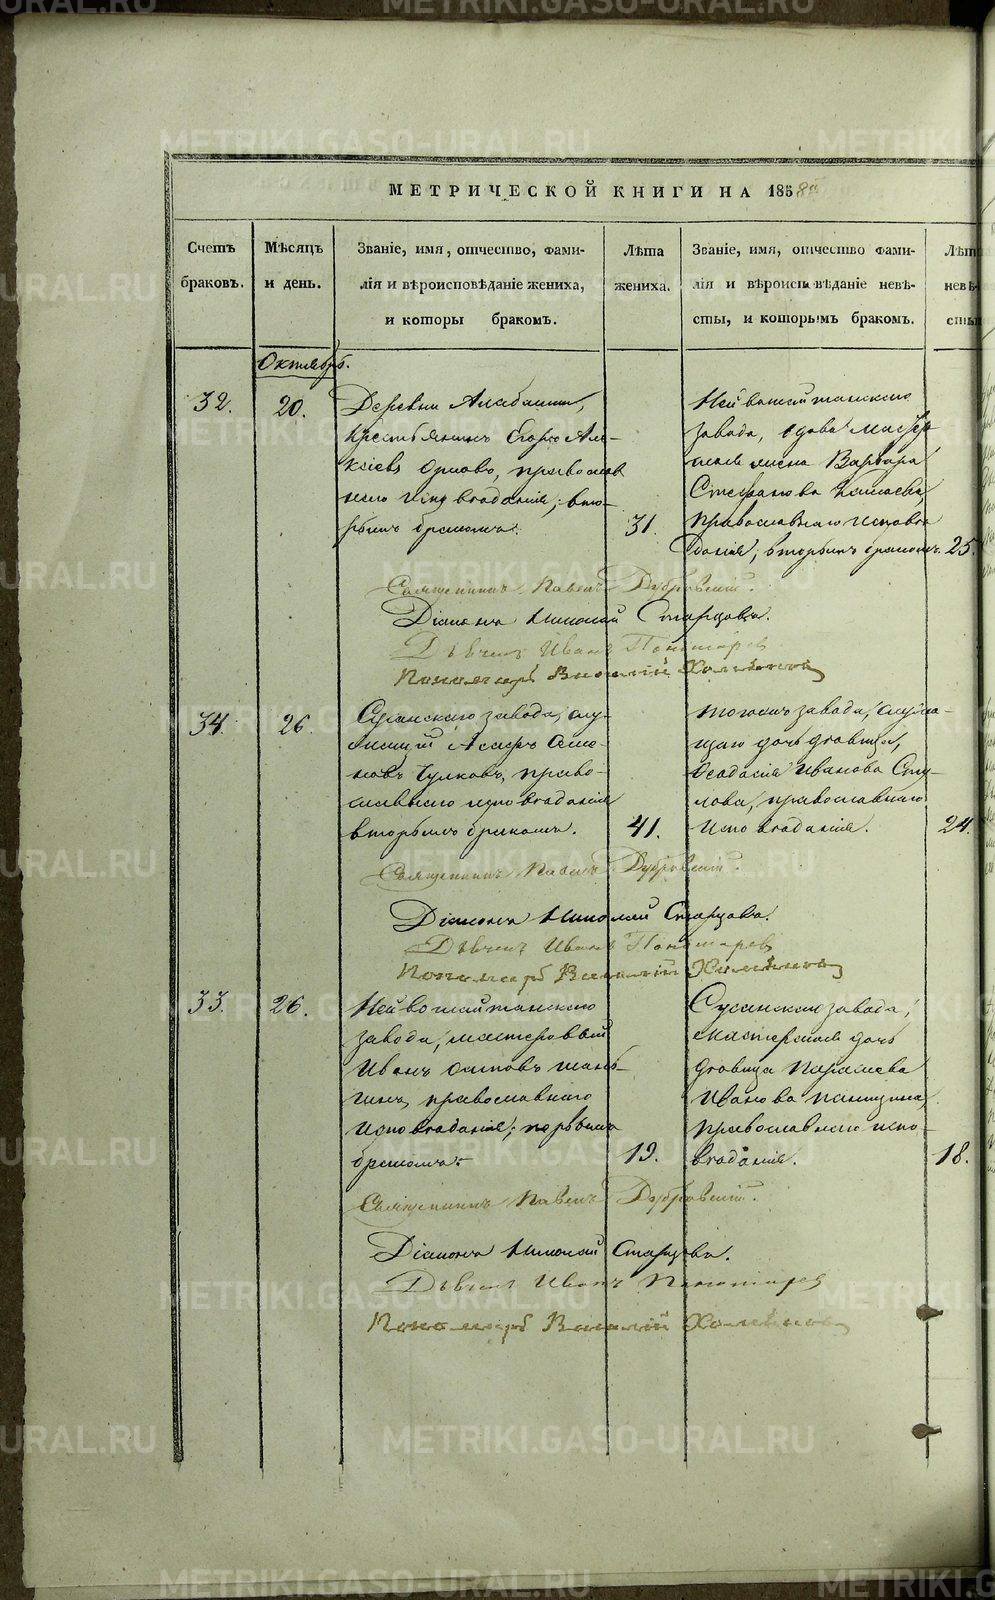 МЕТРИЧЕСКОЙ КНИГИ НА 1858й
Счетъ браковъ.
Мѣсяцъ и день.
Званіе, имя, отчество, фами-
лія и вѣроисповѣданіе жениха,
и которы бракомъ.
Лѣта жениха.
Званіе, имя, отчество фами-
лія и вѣроисповѣданіе невѣ-
сты, и которымъ бракомъ.
Лѣт
невѣ-
сты
Октябрь.
32.
20.
Деревни
Крестьянинъ Егоръ Але-
ксѣевъ Орловъ, православ
наго исповѣданія; вто-
рымъ бракомъ.
31.
Нейвошайтанскаго
завода, вдова мастер
ская жена Варвара
Стефанова
православнаго исповѣ
данія, вторымъ бракомъ.
25.
Священникъ Павелъ Дубровскій.
Діаконъ Николай Старцовъ.
Дьячекъ Иванъ Пономаревъ
Пономарь Василій
34.
26.
Сусанскаго завода, слу-
жащій
православ-
наго исповѣданія
вторымъ бракомъ.
41.
тогожъ завода, служа-
щаго дочь дѣвица,
Ѳеодосія Иванова
православнаго
исповѣданія.
24.
Священникъ Павелъ Дубровскій.
Діаконъ Николай Старцовъ.
Дьячекъ Иванъ Пономаревъ
Пономарь Василій
33.
26.
Нейвошайтанскаго
завода, мастеровый
Иванъ Осиповъ Шань-
гинъ, православнаго
исповѣданія; первымъ
бракомъ
19.
Сусанскаго завода,
мастерская дочь
дѣвица Парасковья
Иванова Паньшина,
православнаго испо-
вѣданія.
18.
Священникъ Павелъ Дубровскій.
Діаконъ Николай Старцовъ.
Дьячекъ Иванъ Пономаревъ
Пономарь Василій
METRIKI.GASO-URAL.RU